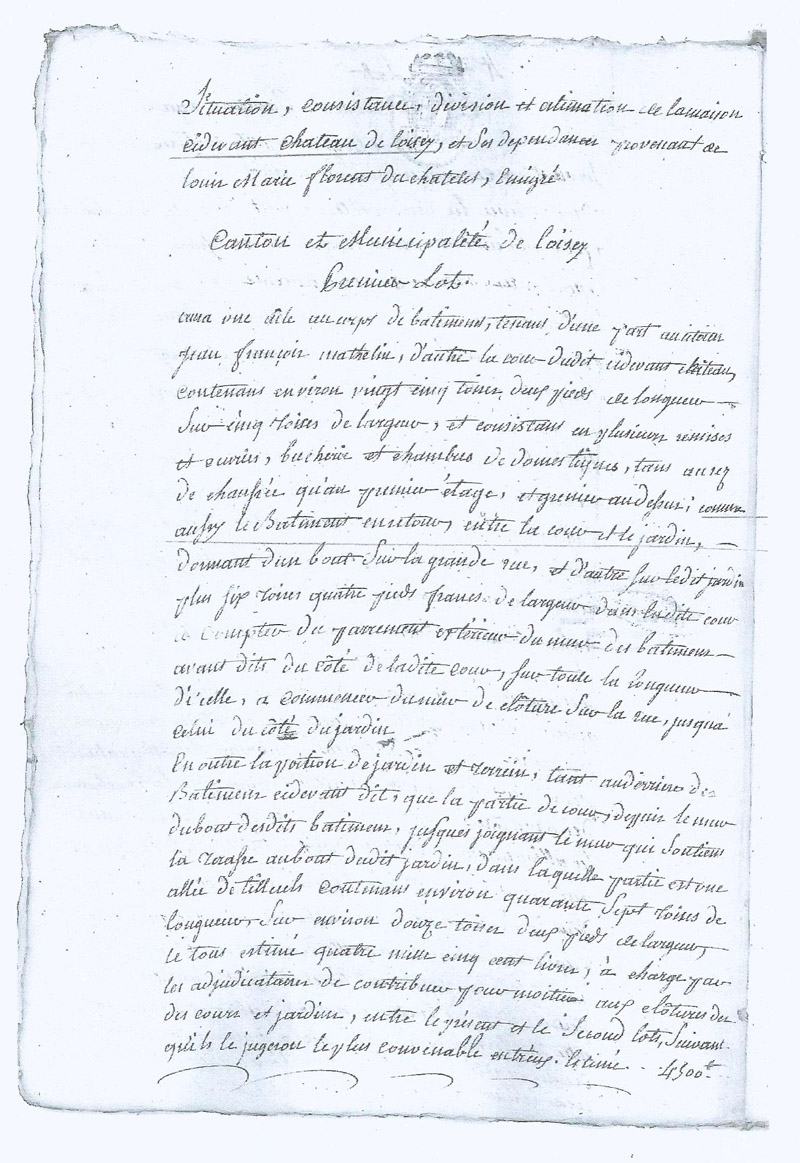 Situation, consistance, division et estimation de la maison
cidevant chateau de loisey, et ses dependances provenant de
louis Marie florent duchatelet, Emigré
Canton et Municipalité de loisey
Premier Lot.
aura une aîle au corps de batiment, tenans d'une part au citoien
jean françois mathelin, d'autre la cour dudit cidevant château,
contenans environ vingt cinq toises deux pieds de longueur
Sur cinq toises de largeur, et consistans en plusieurs remises
et ecuries, bucherie et chambres de domestiques, tans au rez
de chaussée qu'au premier étage, et grenier au dessus; comme
aussy le Batiment en retour, entre la cour et le jardin,
donnant d'un bout Sur la grande rue, et d'autre sur ledit jardin
plus six toises quatre pieds francs de largeur dans ladite cour
a compter du parrement extérieur du mur des batimens
avant dits du côté de ladite cour, sur toute la longueur
d'icelle, a commencer du mur de clôture Sur la rue, jusqu'a
celui du côté du jardin
En outre la portion de jardin et terrein, tant au derriere des
Batimens cidevant dit, que la partie de cour, depuis le mur
du bout desdits batimens, jusques joignant le mur qui Soutiens
la terasse au bout dudit jardin, dans laquelle partie est une
allée de tilleuls contenans environ quarante Sept toises de
longueur, Sur environ douze toises deux pieds de largeur,
le tous estimé quatre mille cinq cent livres, à charge par
les adjudicataires de contribuer pour moitié aux clôtures des
des cours et jardins, entre le présent et le Second lots, suivant
qu'ils le jugeron le plus convenable entr'eux. Estimé .. 4500#